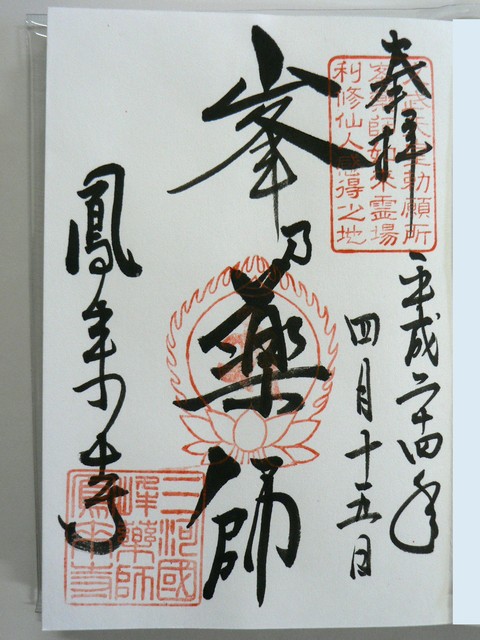 奉拝
文武天皇勅願所
峯薬師如来霊場
利修仙人感得之地
平成二十四年
四月十五日
峯乃薬師
鳳来寺
三河國
峰薬師
鳳来寺